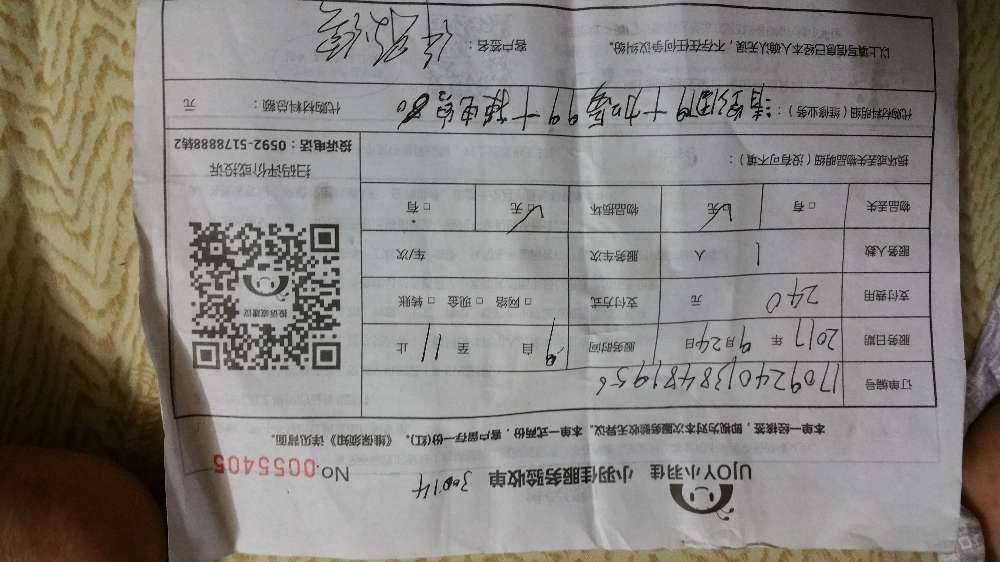 UJOY小羽佳 小羽佳服务验收单 30014
No.0055405
本单一经核签，即视为对本次服务验收无异议。本单一式两份，客户留存一份(红)。《维保须知》详见背面。
订单编号 17092401384481956
服务日期 2017 年 9 月 24 日 服务时间 自 9 至 11 止
支付费用 240 元 支付方式 □ 网络 □ 现金 □ 转账
服务人数 1 人 服务车次 车/次
物品丢失 □ 有 □ 无 物品损坏 □ 无 □ 有
损坏或丢失物品明细（没有可不填）：
代购材料明细（维修业务）： 99+换电容80 代购材料总额： 元
以上填写信息已经本人确认无误，不存在任何争议纠纷。 客户签名：
投诉或建议
扫码评价或投诉
投诉电话：0592-5178888转2